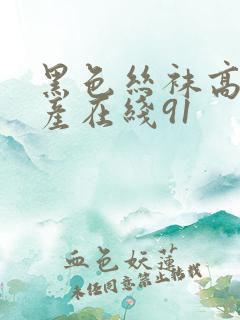 黑色丝袜高
产在线91
血色妖莲
未经同意禁止转载